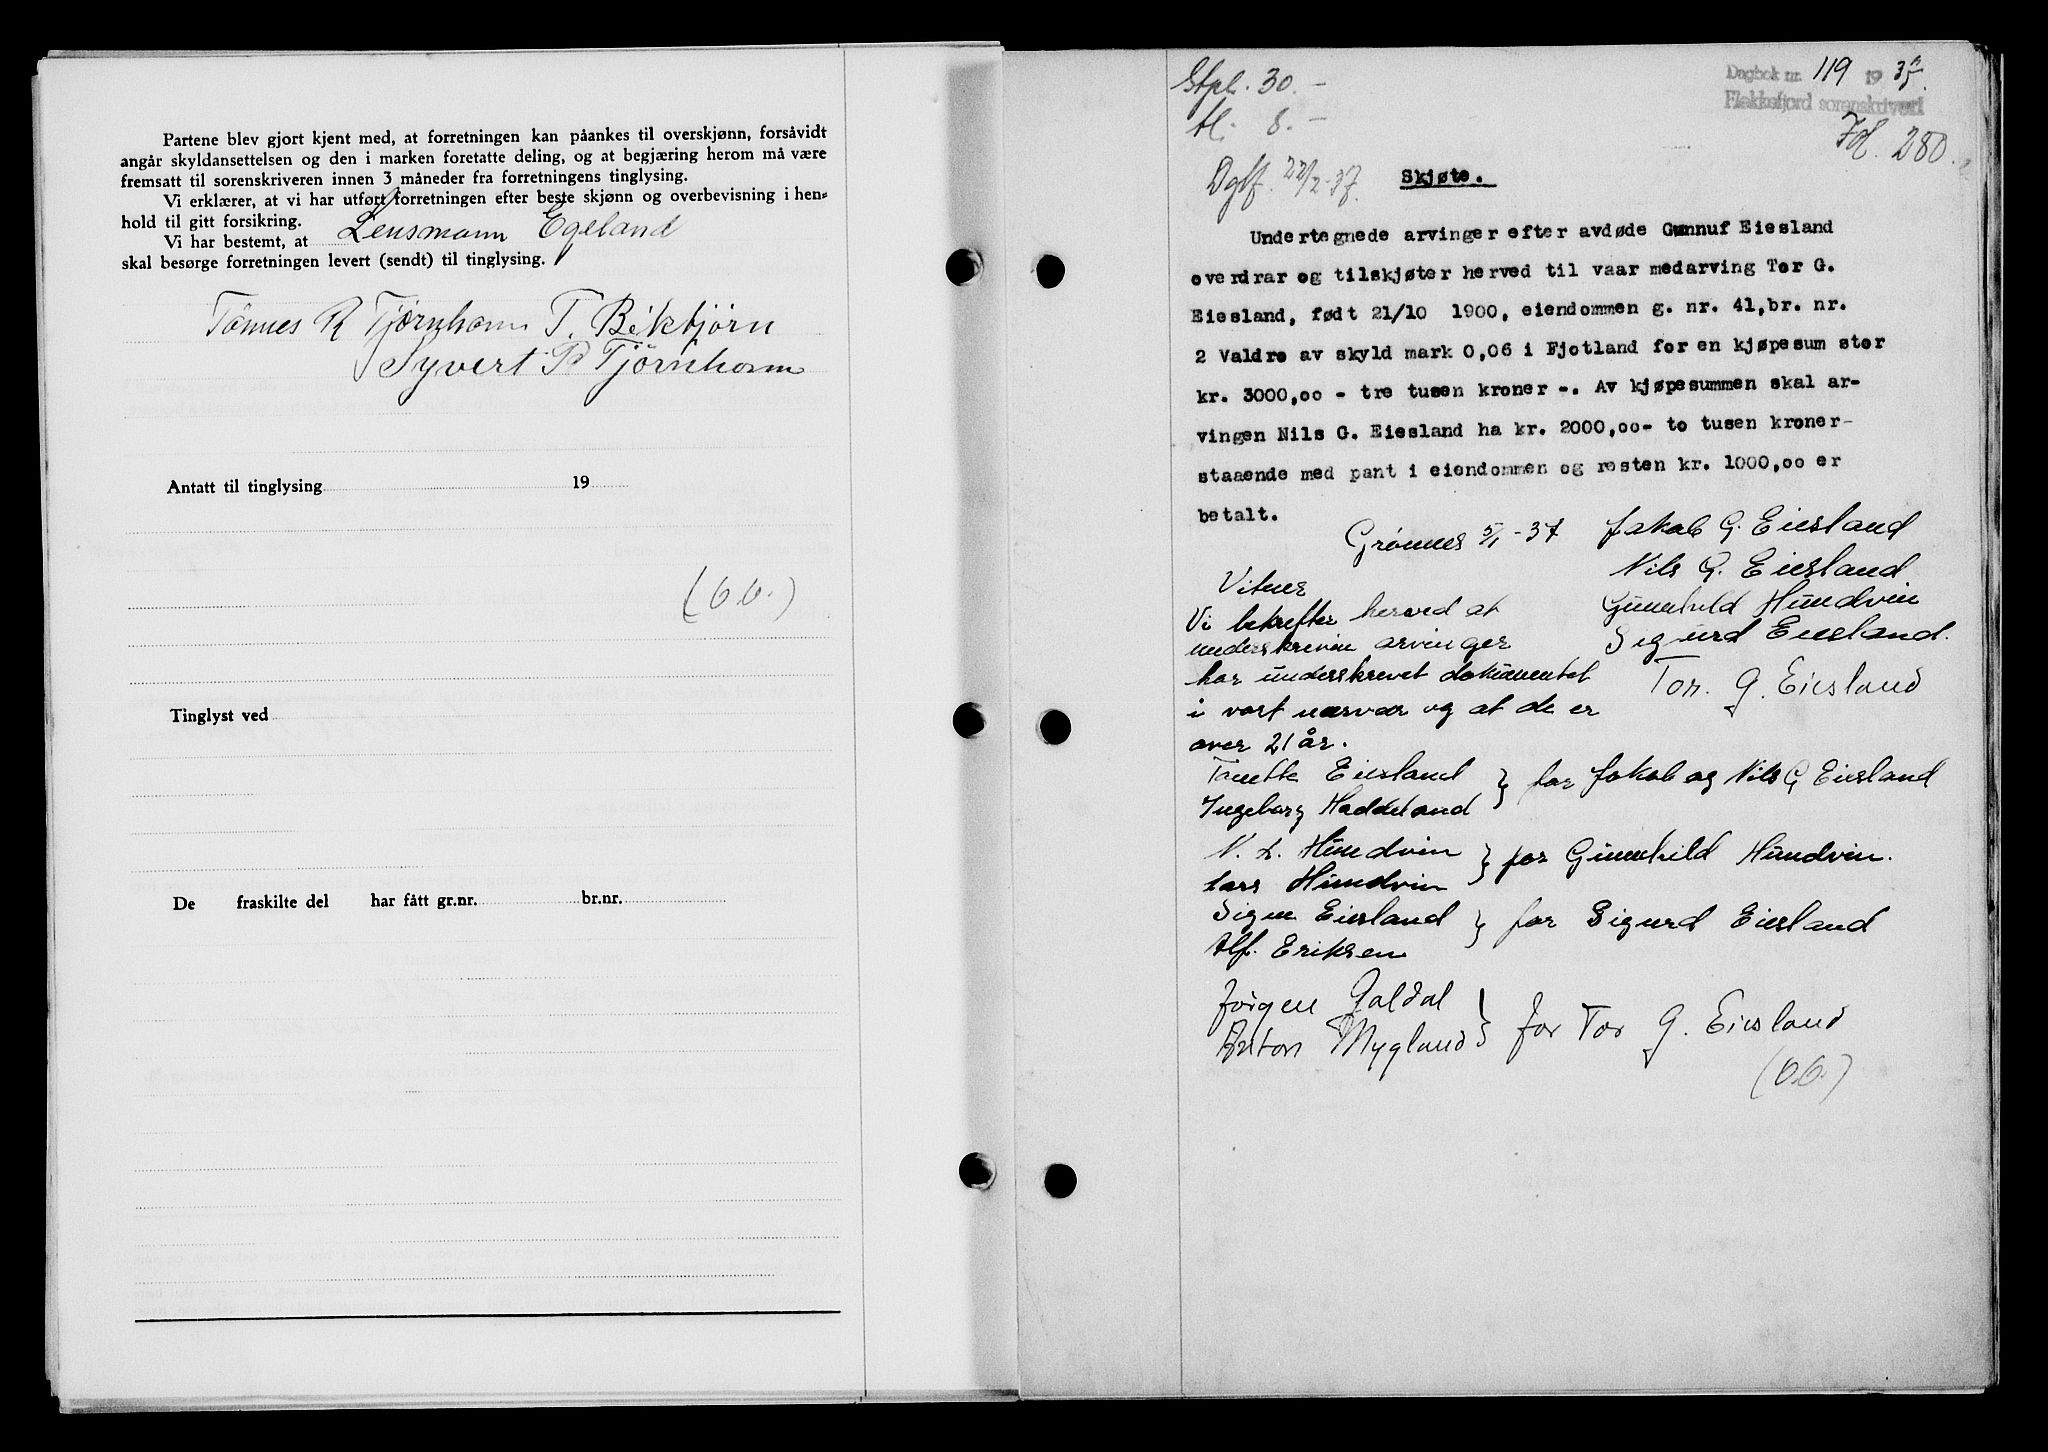 Partene blev gjort kjent med, at forretningen kan påankes til overskjønn, forsåvidt
angår skyldansettelsen og den i marken foretatte deling, og at begjæring herom må være
fremsatt til sorenskriveren innen 3 måneder fra forretningens tinglysing.
Vi erklærer, at vi har utført forretningen efter beste skjønn og overbevisning i hen-
hold til gitt forsikring.
Vi har bestemt, at Lensmann Egeland
skal besørge forretningen levert (sendt) til tinglysing.
Tönnes R Tjørnhom T. Birkbjörn
Syvert P Tjörnhom
Antatt til tinglysing 19
Tinglyst ved
De fraskilte del har fått gr.nr. br.nr.
Stpl. 30.-
tl. 8.-
Dagbok nr. 119 19
Flekkefjord sorenskriveri
Fol. 280.
Dgbf. 22/2-37.
Skjøte.
Undertegnede arvinger efter avdøde Gunnuf Eiesland
overdrar og tilskjøter herved til vaar medarving Tor G.
Eiesland, født 21/10 1900, eiendommen g. nr. 41, br. nr.
2 Valdre av skyld mark 0,06 i Fjotland for en kjøpesum stor
kr. 3000,oo - tre tusen kroner -. Av kjøpesummen skal ar-
vingen Nils G. Eiesland ha kr. 2000,oo- to tusen kroner-
staaende med pant i eiendommen og resten kr. 1000,oo er
betalt.
Grönnes 5/1 -37
Jakob G. Eiesland
Nils G. Eiesland
Gunnhild Hundvin
Sigurd Eiesland.
Tor. G. Eiesland
Vitner
Vi bekrefter herved at
underskreven arvinger
har underskrevet dokumentet
i vort nærvær og at de er
over 21 år.
Tonette Eiesland
Ingeborg Haddeland } for Jakob og Nils G Eiesland
N. L. Hundvin
Lars Hundvin } for Gunnhild Hundvin.
Signe Eiesland
Alf. Eriksen } for Sigurd Eiesland
Jörgen Galdal
Anton Mygland } for Tor G. Eiesland